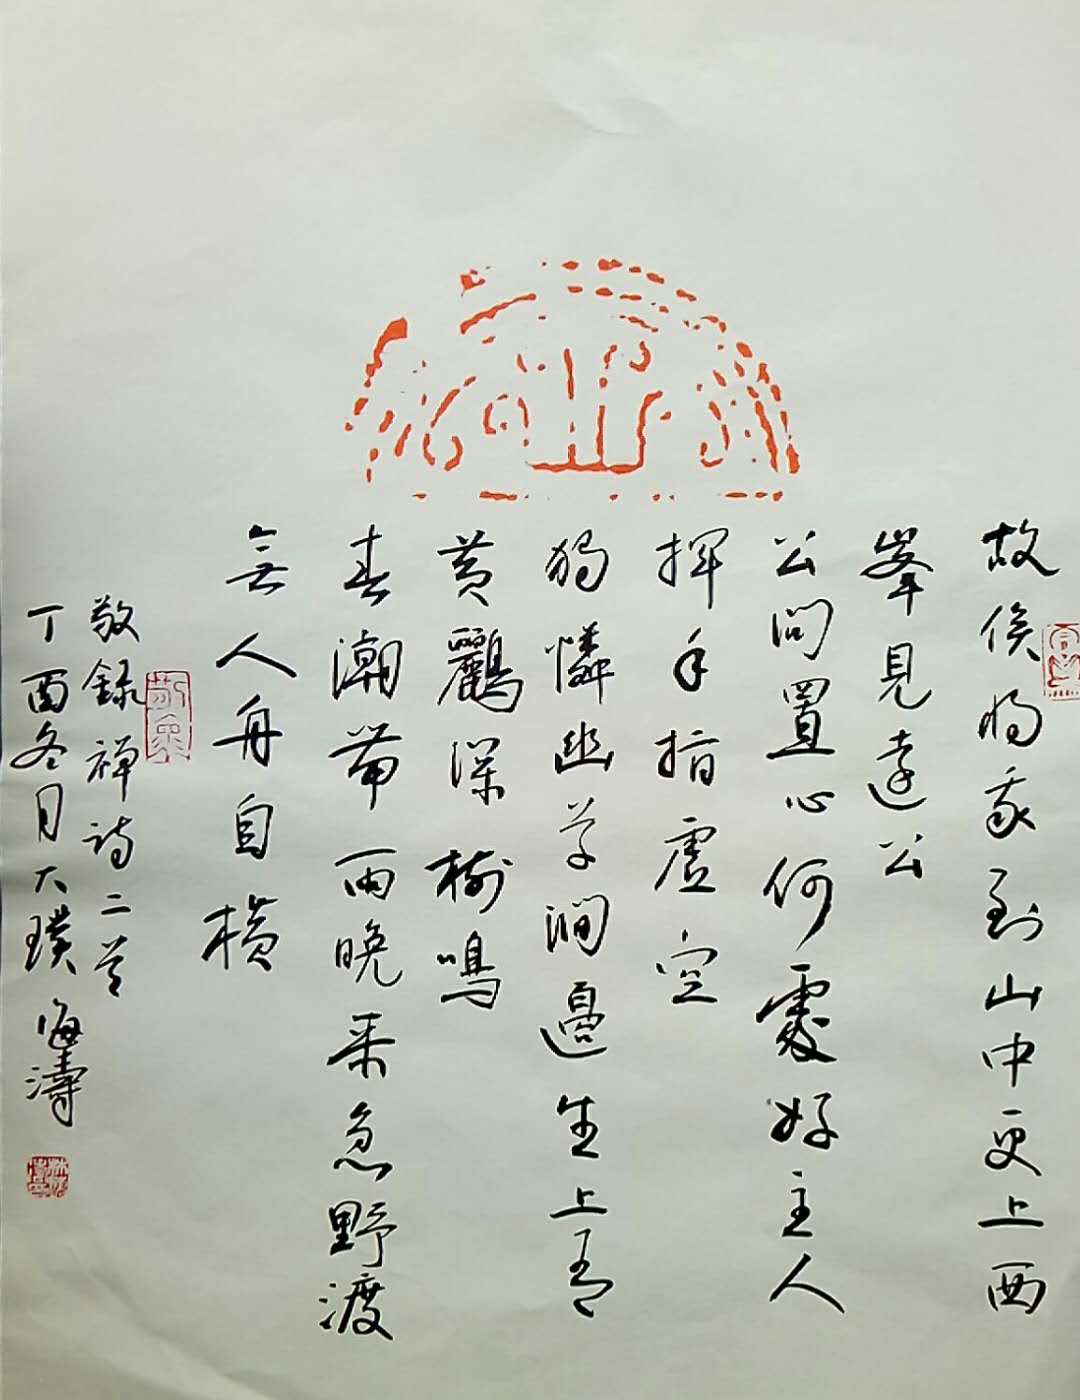 故侯将我到山中更上西
峯見遠公
公問置心何處好主人
揮手指虛空
獨憐幽草澗邊生上有
黄鸝深樹鳴
春潮帶雨晚来急野渡
無人舟自横
敬錄禅诗二首
丁酉冬月大璞海濤